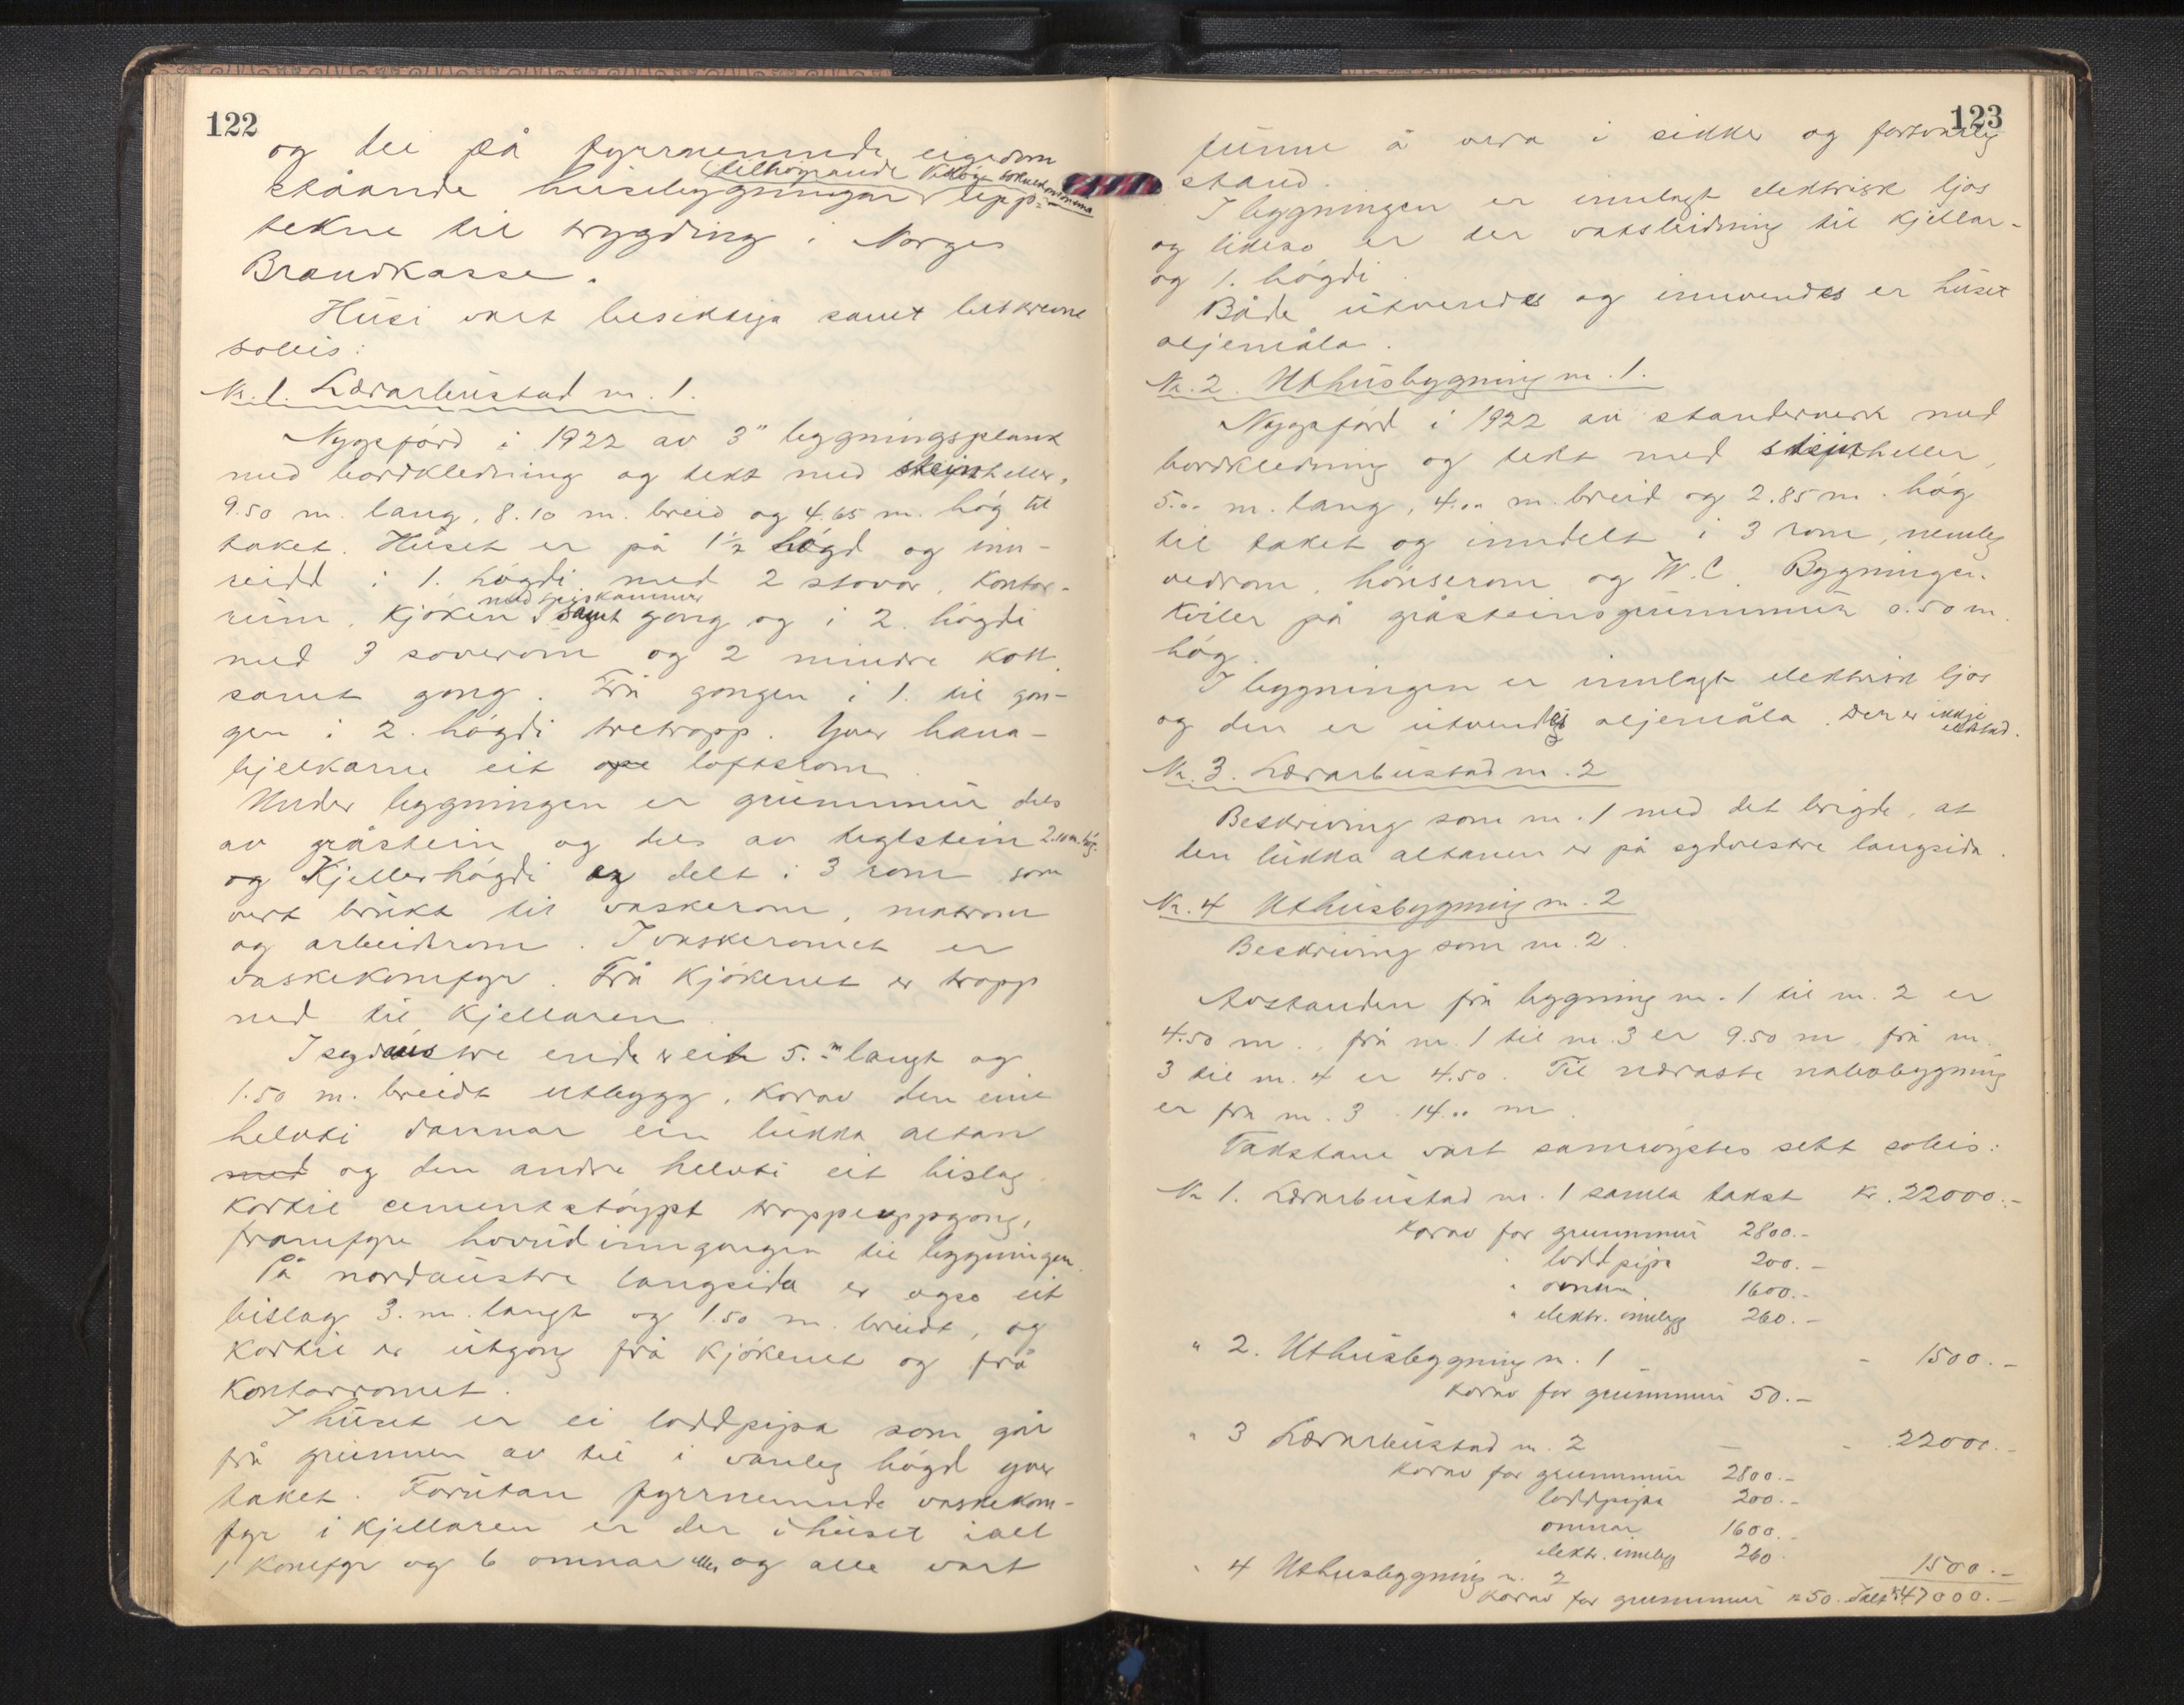 122
og dei på fyrrnemnde eigedom
(tilhøyrande
ståande husebygningar upp-
tekne til trygding i Norges
Brandkasse.
Husi vart besiktiga samt beskrevne
soleis:
Nr. 1. Lærarbustad nr. 1.
Nygaførd i 1922 av 3" bygningsplank
med bordkledning og tekt med steinheller,
9.50 m. lang, 8.10 m. breid og 4.65 m. høg til
taket. Huset er på 1½ høgd og inn-
reidd i 1. høgdi med 2 stovor, kontor-
med spiskammer
rum, kjøken samt gong og i 2. høgdi
med 3 soverom og 2 mindre kott
samt gong. Frå gongen i 1. til gon-
gen i 2. høgdi tretropp. Yver hana-
bjelkarne eit ope loftsrom.
Under bygningen er grunnmur dels
av gråstein og dels av teglstein 2.10 m. høg.
og Kjellerhøgdi er delt i 3 rom som
vert brukt til vaskerom, matrom
og arbeidsrom. I vaskeromet er
vaskekomfyr. Frå kjøkenet er tropp
ned til kjellaren.
I sydaustre ende er eit 5.00 m langt og
1.50 m. breidt utbygg, korav den eine
helvti dannar ein lukka altan
med og den andre helvti eit bislag
kortil cementstøypt troppeuppgong,
framfyre hovudinngongen til bygningen.
På nordaustre langsida er ogso eit
bislag 3. m. langt og 1.50 m. breidt, og
kortil er utgong frå kjøkenet og frå
kontorromet.
I huset er ei loddpipa som går
frå grunnen av til i vanleg høgd yver
taket. Forutan fyrrnemnde vaskekom-
fyr i kjellaren er der i huset ialt
1 komfyr og 6 omnar og alle vart
123
funne å vera i sikker og forsvarleg
stand.
I bygningen er innlagt elektrisk ljos
og likeso er der vatsleidning til kjellar-
og 1. høgdi.
Både utvendes og innvendes er huset
oljemåla.
Nr. 2. Uthusbygning nr. 1.
Nygaførd i 1922 av standerverk med
bordkledning og tekt med steinheller,
5.00 m. lang, 4.00 m. breid og 2.85 m. høg
til taket og inndelt i 3 rom, nemleg
vedrom, hønserom og W.C. Bygningen
kviler på gråsteinsgrunnmur 0.50 m.
høg.
I bygningen er innlagt elektrisk ljos
og den er utvendes oljemåla. Der er ikkje
eldstad.
Nr. 3. Lærarbustad nr. 2
Beskriving som nr. 1 med det brigde, at
den lukka altanen er på sydvestre langsida.
Nr. 4 Uthusbygning nr. 2
Beskriving som nr. 2.
Avstanden frå bygning nr. 1 til nr. 2 er
4.50 m., frå nr. 1 til nr. 3 er 9.50 m, frå nr.
3 til nr. 4 er 4.50. Til næraste nabobygning
er frå nr. 3 14.00 m.
Takstane vart samrøystes sett soleis:
Nr 1. Lærarbustad nr. 1 samla takst kr. 22000.-
korav for grunnmur 2800.-
" loddpipa 200.-
" omnar 1600.-
" elektr. innlegg 260.-
" 2. Uthusbygning nr. 1 - - 1500.-
korav for grunnmur 50.-
" 3 Lærarbustad nr. 2 - - 22000.-
korav for grunnmur 2800.-
loddpipa 200.-
omnar 1600.-
elektr. innlegg 260.
" 4 Uthusbygning nr. 2 1500.-
korav for grunnmur kr 50. Ialt kr. 47000.-